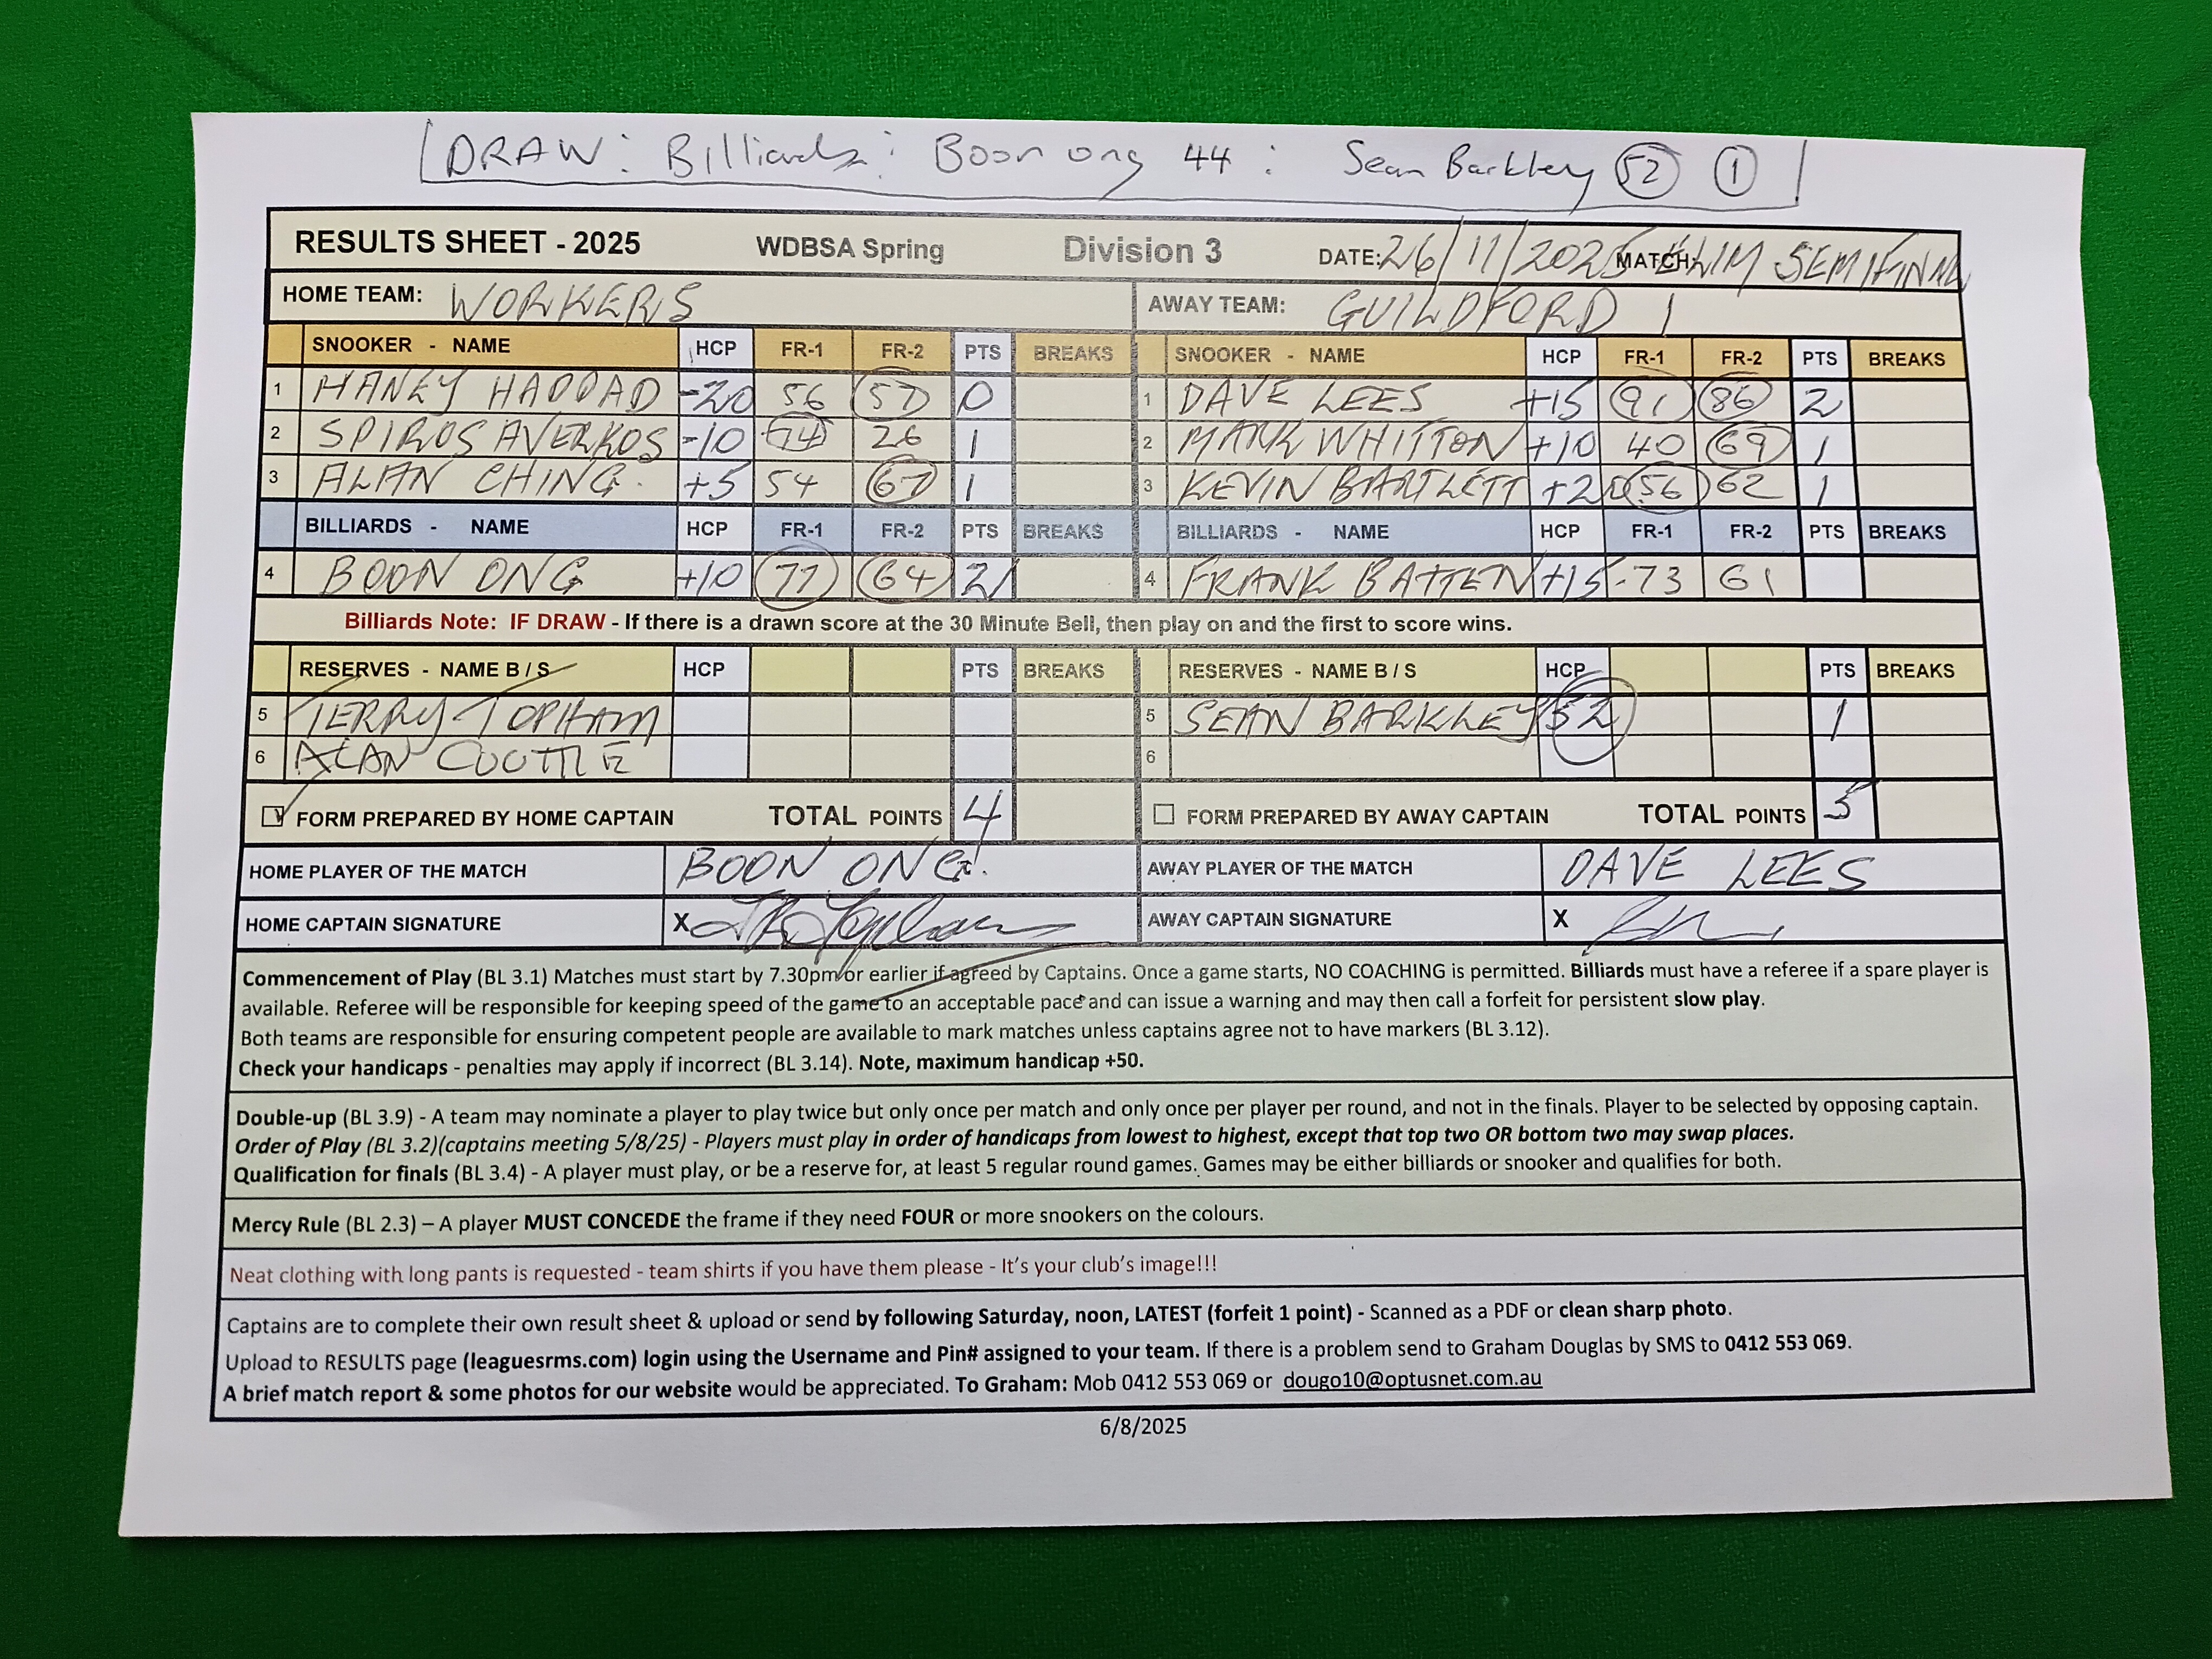 DRAW: Billiards: Boon ong 44 : Sean Barkley 52 1
RESULTS SHEET - 2025 WDBSA Spring Division 3 DATE: 26/11/2025 MATCH: ELIM SEMI FINAL
HOME TEAM: WORKERS AWAY TEAM: GUILDFORD 1
SNOOKER - NAME HCP FR-1 FR-2 PTS BREAKS SNOOKER - NAME HCP FR-1 FR-2 PTS BREAKS
1 HANEY HADDAD -20 56 57 0 1 DAVE LEES +15 91 86 2
2 SPIROS AVERKOS -10 74 26 1 2 MARK WHITTON +10 40 69 1
3 ALAN CHING +5 54 67 1 3 KEVIN BARTLETT +20 56 62 1
BILLIARDS - NAME HCP FR-1 FR-2 PTS BREAKS BILLIARDS - NAME HCP FR-1 FR-2 PTS BREAKS
4 BOON ONG +10 77 64 2 4 FRANK BATTEN +15 73 61
Billiards Note: IF DRAW - If there is a drawn score at the 30 Minute Bell, then play on and the first to score wins.
RESERVES - NAME B / S HCP PTS BREAKS RESERVES - NAME B / S HCP PTS BREAKS
5 TERRY TOPHAM 5 SEAN BARKLEY 52 1
6 ALAN 6
FORM PREPARED BY HOME CAPTAIN TOTAL POINTS 4 FORM PREPARED BY AWAY CAPTAIN TOTAL POINTS 5
HOME PLAYER OF THE MATCH BOON ONG. AWAY PLAYER OF THE MATCH DAVE LEES
HOME CAPTAIN SIGNATURE X AWAY CAPTAIN SIGNATURE X
Commencement of Play (BL 3.1) Matches must start by 7.30pm or earlier if agreed by Captains. Once a game starts, NO COACHING is permitted. Billiards must have a referee if a spare player is
available. Referee will be responsible for keeping speed of the game to an acceptable pace and can issue a warning and may then call a forfeit for persistent slow play.
Both teams are responsible for ensuring competent people are available to mark matches unless captains agree not to have markers (BL 3.12).
Check your handicaps - penalties may apply if incorrect (BL 3.14). Note, maximum handicap +50.
Double-up (BL 3.9) - A team may nominate a player to play twice but only once per match and only once per player per round, and not in the finals. Player to be selected by opposing captain.
Order of Play (BL 3.2)(captains meeting 5/8/25) - Players must play in order of handicaps from lowest to highest, except that top two OR bottom two may swap places.
Qualification for finals (BL 3.4) - A player must play, or be a reserve for, at least 5 regular round games. Games may be either billiards or snooker and qualifies for both.
Mercy Rule (BL 2.3) – A player MUST CONCEDE the frame if they need FOUR or more snookers on the colours.
Neat clothing with long pants is requested - team shirts if you have them please - It's your club's image!!!
Captains are to complete their own result sheet & upload or send by following Saturday, noon, LATEST (forfeit 1 point) - Scanned as a PDF or clean sharp photo.
Upload to RESULTS page (leaguesrms.com) login using the Username and Pin# assigned to your team. If there is a problem send to Graham Douglas by SMS to 0412 553 069.
A brief match report & some photos for our website would be appreciated. To Graham: Mob 0412 553 069 or dougo10@optusnet.com.au
6/8/2025